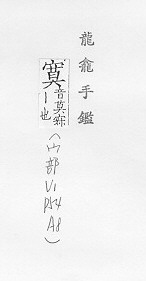 龍龕手鑑
音莫
丨也
(宀部
V1
P54
A8)